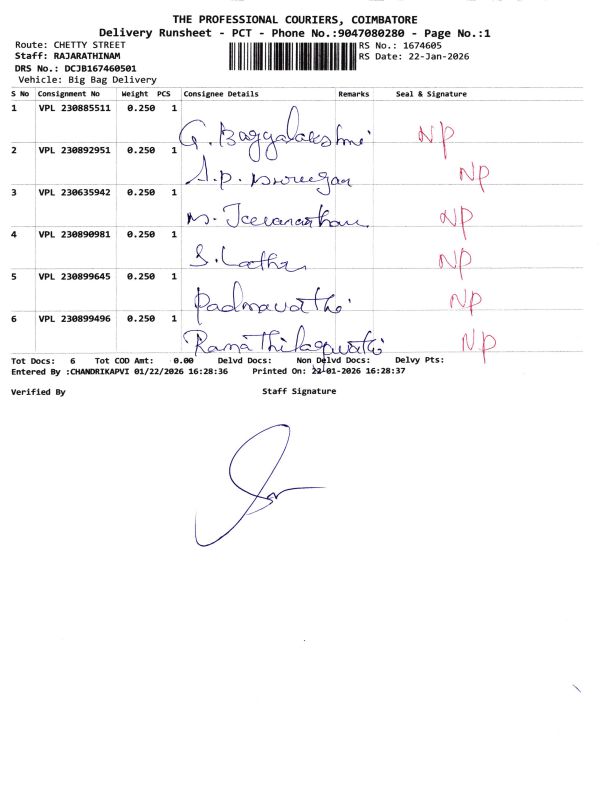 THE PROFESSIONAL COURIERS, COIMBATORE
Delivery Runsheet - PCT - Phone No.:9047080280 - Page No.:1
Route: CHETTY STREET RS No.: 1674605
Staff: RAJARATHINAM RS Date: 22-Jan-2026
DRS No.: DCJB167460501
Vehicle: Big Bag Delivery
S No Consignment No Weight PCS Consignee Details Remarks Seal & Signature
1 VPL 230885511 0.250 1 G. Baggalakshmi NP
2 VPL 230892951 0.250 1 A.P. Murugan NP
3 VPL 230635942 0.250 1 M. NP
4 VPL 230890981 0.250 1 S. Latha NP
5 VPL 230899645 0.250 1 Padmavathi NP
6 VPL 230899496 0.250 1 NP
Tot Docs: 6 Tot COD Amt: 0.00 Delvd Docs: Non Delvd Docs: Delvy Pts:
Entered By :CHANDRIKAPVI 01/22/2026 16:28:36 Printed On: 22-01-2026 16:28:37
Verified By Staff Signature